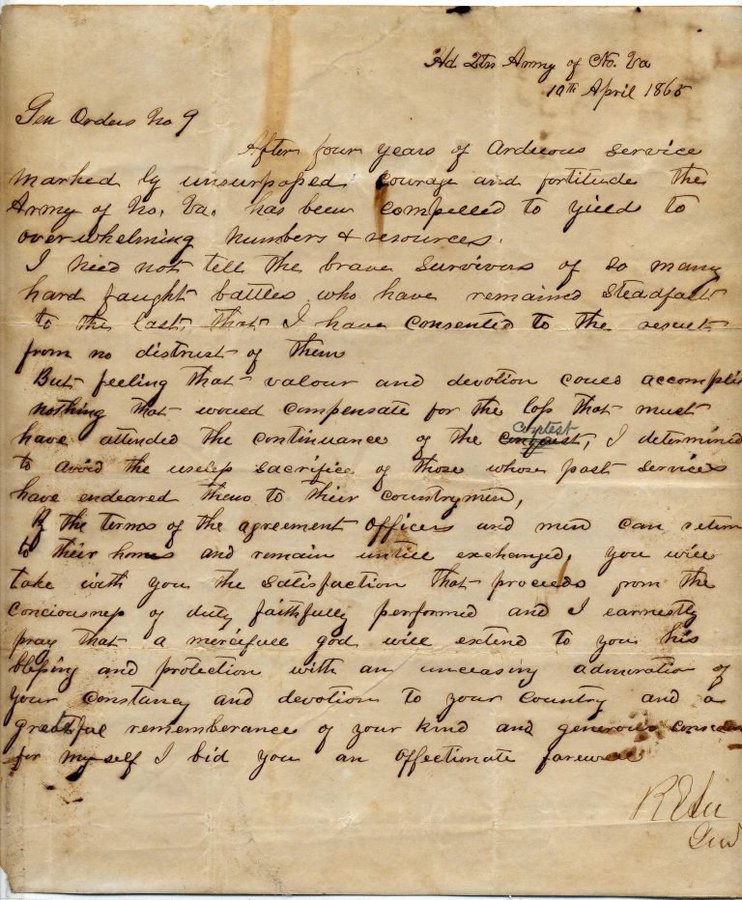 Hd Qtrs Army of No. Va
10th April 1865
Gen Orders No 9
After four years of Arduous service
marked by unsurpassed courage and fortitude the
Army of No. Va. has been compelled to yield to
overwhelming numbers & resources.
I need not tell the brave survivors of so many
hard faught battles who have remained steadfast
to the last, that I have consented to the result
from no distrust of them
But feeling that valour and devotion could accomplis
nothing that would compensate for the loss that must
have attended the continuance of the contest, I determined
to avoid the useless sacrifice of those whose past services
have endeared them to their countrymen,
By the terms of the agreement officers and men can return
to their homes and remain untill exchanged, you will
take with you the satisfaction that proceeds from the
conciousness of duty faithfully performed and I earnestly
pray that a mercifull god will extend to you his
blessing and protection with an unceasing admoration of
your constancy and devotion to your Country and a
grateful rememberance of your kind and generous consid
for myself I bid you an affectionate farewell
R E Lee
Genl